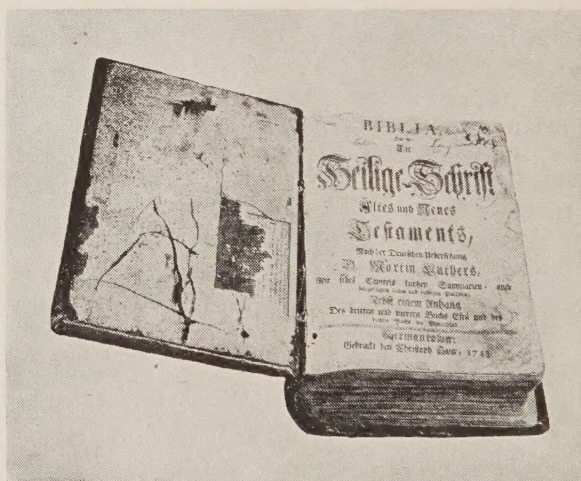 BIBLIA,
Die
Heilige-Schrift
Altes und Neues
Testaments,
Nach der Deutschen Uebersetzung
D. Martin Luthers,
Mit jedes Capitels kurtzen Summarien, auch
Nebst einem Anhang
Des dritten und vierten Buchs Esrä und des
Germantown:
Gedruckt bey Christoph Saur, 1743